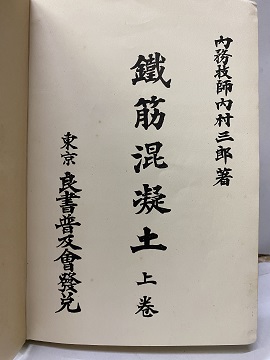 内務技師内村三郎著
鐵筋混凝土 上卷
東京 良書普及會發兌